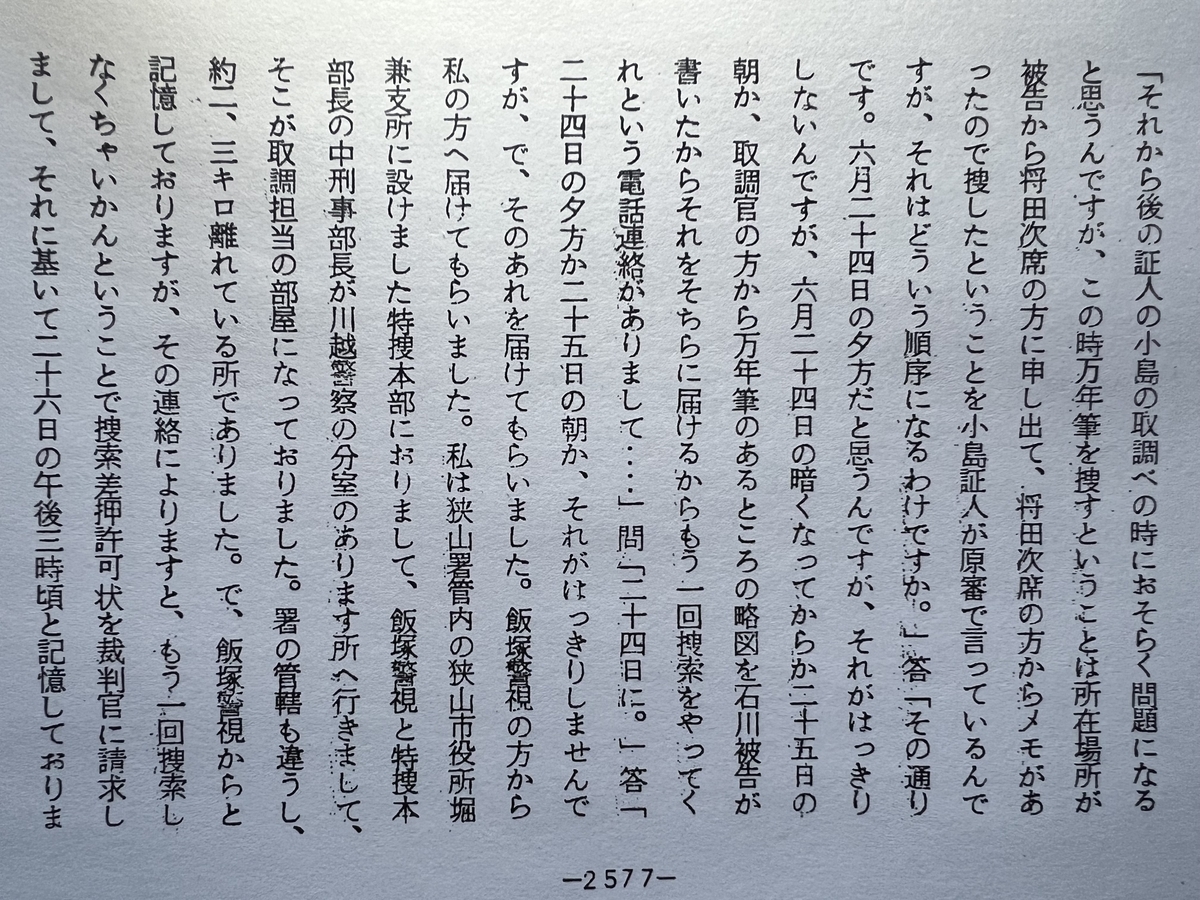 「それから後の証人の小島の取調べの時におそらく問題になる
と思うんですが、この時万年筆を捜すということは所在場所が
被告から将田次席の方に申し出て、将田次席の方からメモがあ
ったので捜したということを小島証人が原審で言っているんで
すが、それはどういう順序になるわけですか。」答「その通り
です。六月二十四日の夕方だと思うんですが、それがはっきり
しないんですが、六月二十四日の暗くなってからか二十五日の
朝か、取調官の方から万年筆のあるところの略図を石川被告が
書いたからそれをそちらに届けるからもう一回捜索をやってく
れという電話連絡がありまして・・・・」問「二十四日に。」答「
二十四日の夕方か二十五日の朝か、それがはっきりしませんで
すが、で、そのあれを届けてもらいました。飯塚警視の方から
私の方へ届けてもらいました。私は狭山署管内の狭山市役所堀
兼支所に設けました特捜本部におりまして、飯塚警視と特捜本
部長の中刑事部長が川越警察の分室のあります所へ行きまして、
そこが取調担当の部屋になっておりました。署の管轄も違うし、
約二、三キロ離れている所でありました。で、飯塚警視からと
記憶しておりますが、その連絡によりますと、もう一回捜索し
なくちゃいかんということで捜索差押許可状を裁判官に請求し
まして、それに基いて二十六日の午後三時頃と記憶しておりま
—2577—